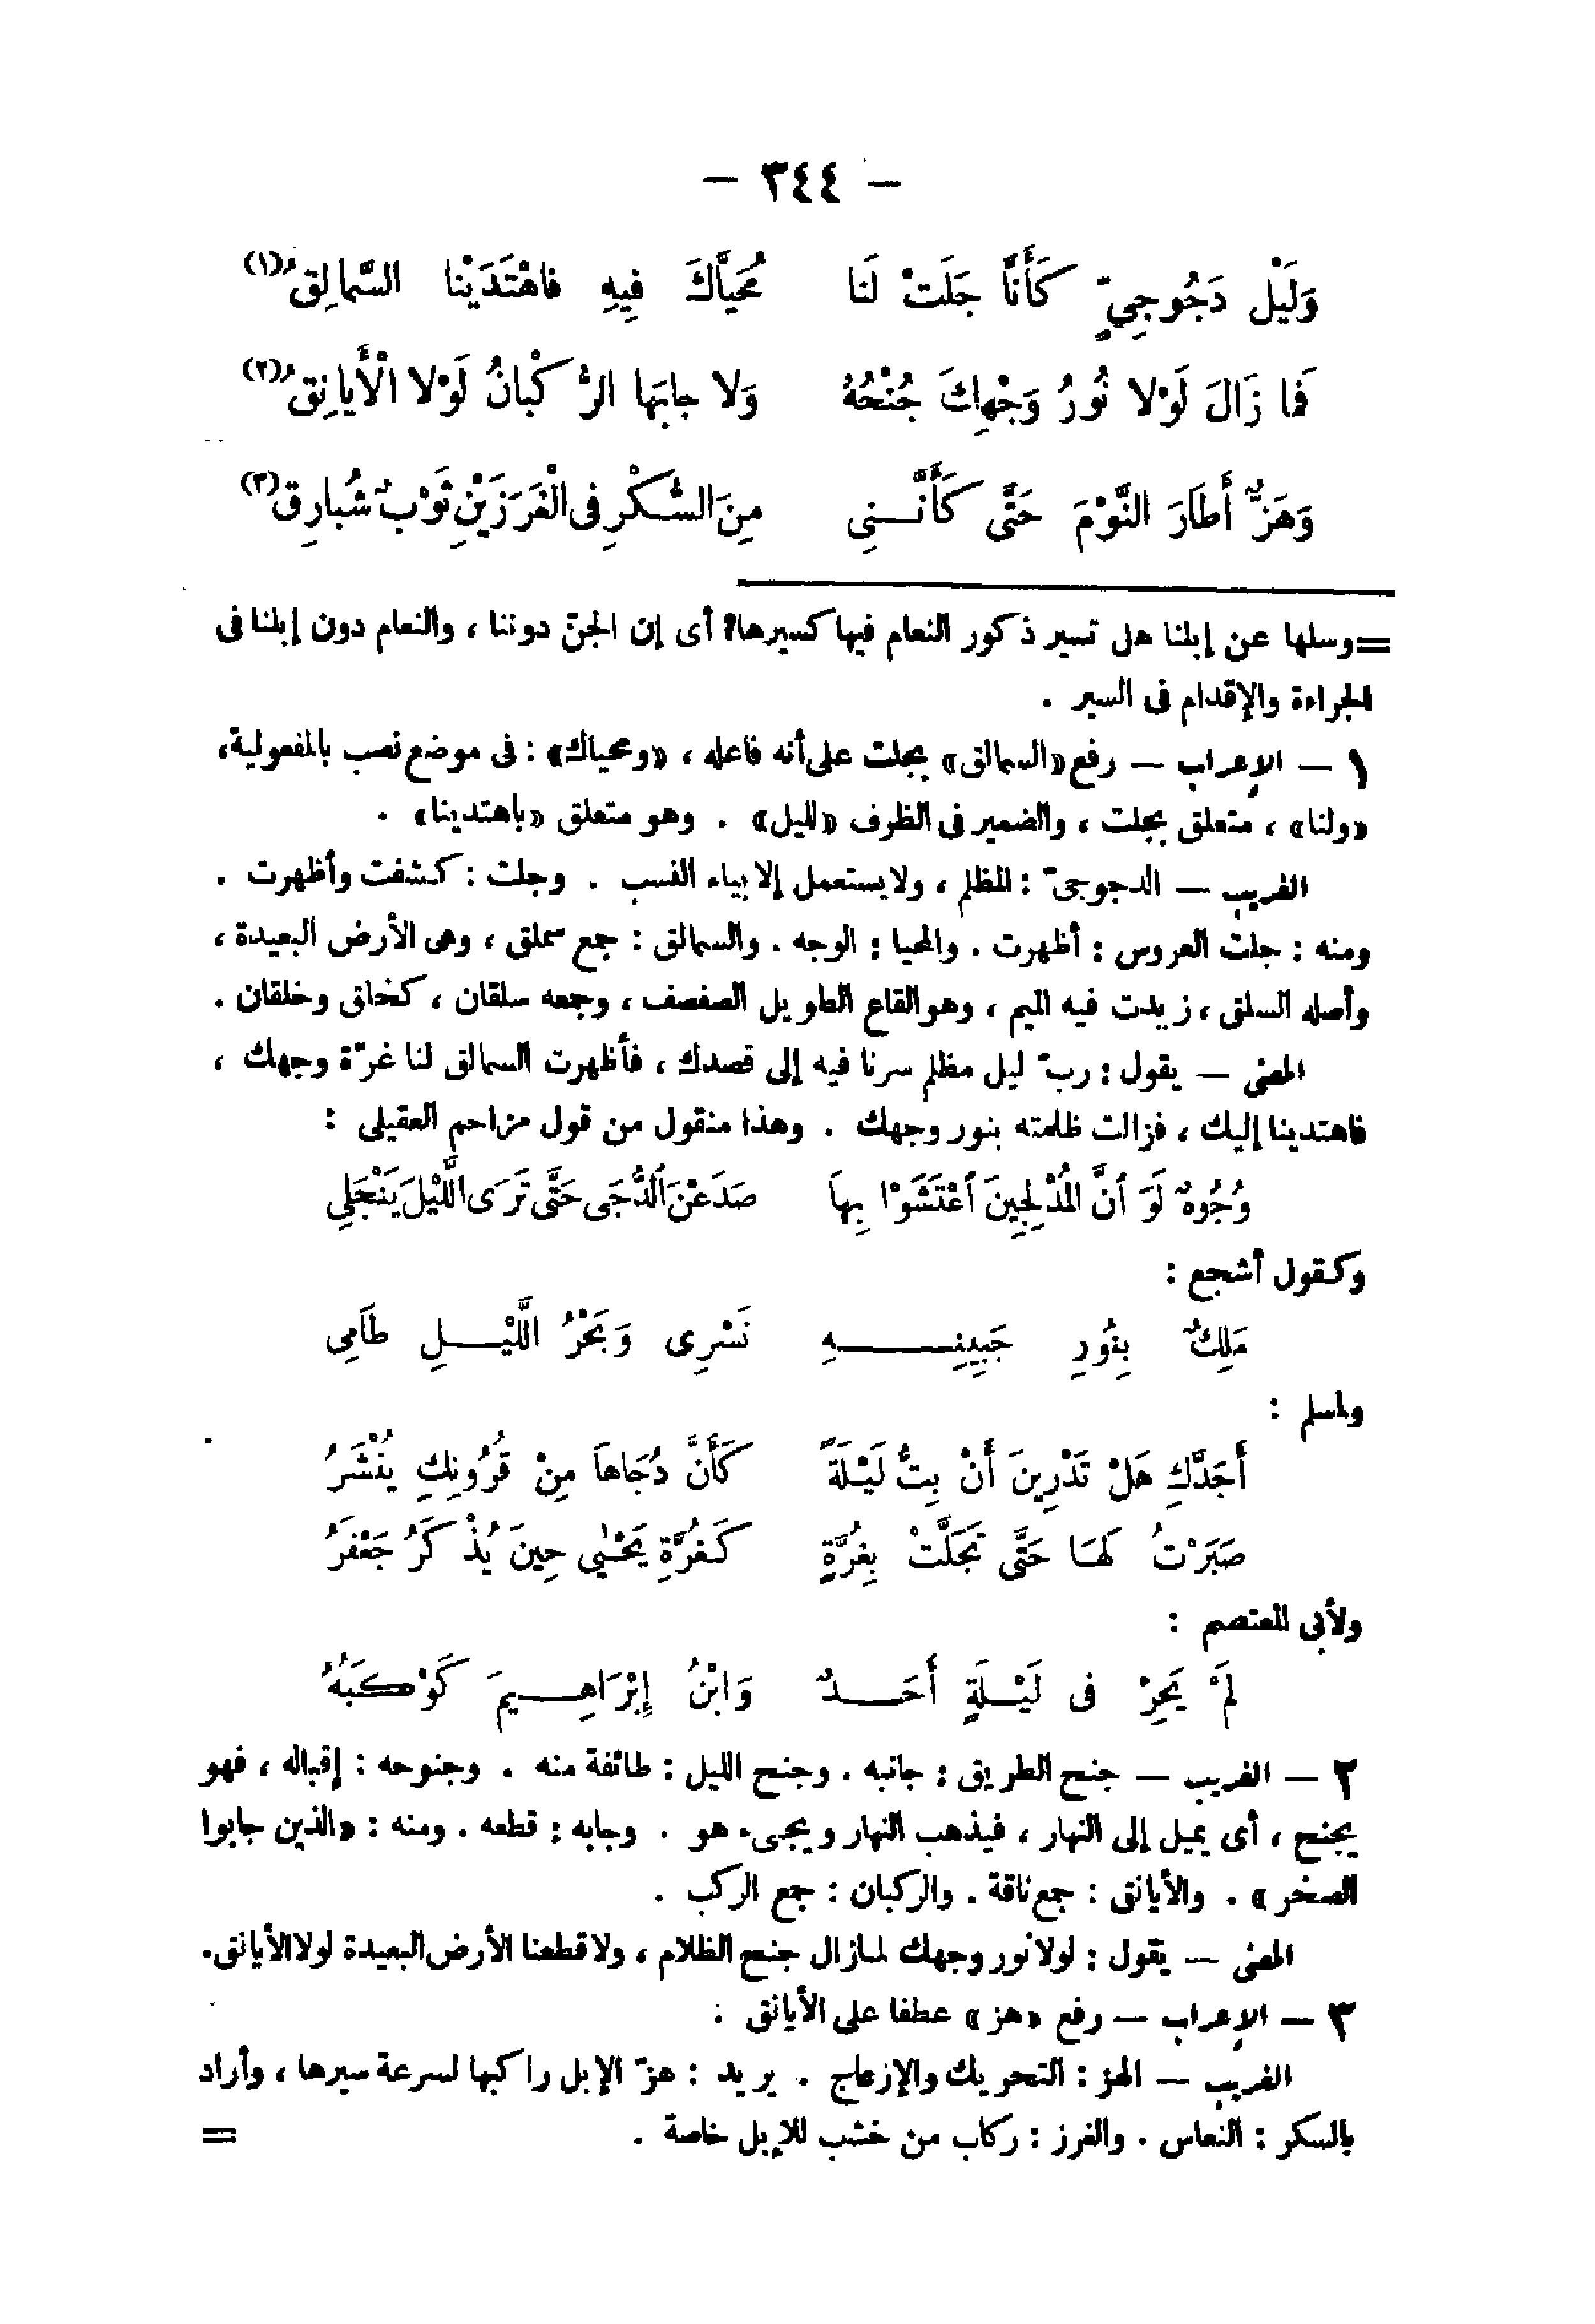 – ٣٤٤ –
وَلَيْل دَجُوجِيٍّ كَأَنَّا جَلَتْ لَنا مُحَيَّاكَ فِيهِ فاهْتَدَيْنا السَّمالِقُ(١)
فَما زَالَ لَوْلا نُورُ وَجْهِكَ جُنْحُهُ وَلا جابَها الرُّكْبانُ لَوْلا الْأَيانِقُ(٢)
وَهَزٌّ أَطارَ النَّوْمَ حَتَّى كَأَنَّنِى مِنَ السُّكْرِ فى الْغَرَزَيْنِ ثَوْبٌ شُبارِق(٣)
=وسلها عن إبلنا هل تسير ذكور النعام فيها كسيرها؟ أى إن الجنّ دوننا ، والنعام دون إبلنا فى
الجراءة والإقدام فى السير .
١ – الإعراب – رفع «السمالق» بجلت على أنه فاعله ، «ومحياك» : فى موضع نصب بالمفعولية،
«ولنا» ، متعلق بجلت ، والضمير فى الظرف «لليل» . وهو متعلق «باهتدينا» .
الغريب – الدجوجىّ : المظلم ، ولا يستعمل إلا بياء النسب . وجلت : كشفت وأظهرت .
ومنه : جلت العروس : أظهرت . والمحيا : الوجه . والسمالق : جمع سملق ، وهى الأرض البعيدة ،
وأصله السلق ، زيدت فيه الميم ، وهو القاع الطويل الصفصف ، وجمعه سلقان ، كخلق وخلقان .
المعنى – يقول : ربّ ليل مظلم سرنا فيه إلى قصدك ، فأظهرت السمالق لنا غرّة وجهك ،
فاهتدينا إليك ، فزالت ظلمته بنور وجهك . وهذا منقول من قول مزاحم العقيلى :
وُجُوهٌ لَوَ أنَّ المُدْلِجِينَ اعْتَشَوْا بِهاَ صَدَعْنَ الدُّجَى حَتَّى تَرَى اللَّيْلَ يَنْجَلِي
وكقول أشجع :
مَلِكٌ بِنُورِ جَبِينِهِ نَسْرِى وَبَحْرُ اللَّيْلِ طاَمِى
ولمسلم :
أَجَدَّكِ هَلْ تَدْرِينَ أَنْ بِتُّ لَيْلَةً كَأَنَّ دُجَاهاَ مِنْ قُرُونِكِ يُنْشَرُ
صَبَرْتُ لَهَا حَتَّى تَجَلَّتْ بِغُرَّةٍ كَغُرَّةِ يَحْيٰى حِينَ يُذْكَرُ جَعْفَرُ
ولأبى المعتصم :
لَمْ يَحِرْ فى لَيْلَةٍ أَحَدٌ وَابْنُ إِبْرَاهِيمَ كَوْكَبُهُ
٢ – الغريب – جنح الطريق : جانبه . وجنح الليل : طائفة منه . وجنوحه : إقباله ، فهو
يجنح ، أى يميل إلى النهار ، فيذهب النهار ويجىء هو . وجابه : قطعه . ومنه : «الذين جابوا
الصخر» . والأيانق : جمع ناقة . والركبان : جمع الركب .
المعنى – يقول : لولا نور وجهك لمازال جنح الظلام ، ولا قطعنا الأرض البعيدة لولا الأيانق.
٣ – الإعراب – رفع «هز» عطفا على الأيانق :
الغريب – الهز : التحريك والإزعاج . يريد : هزّ الإبل راكبها لسرعة سيرها ، وأراد
بالسكر : النعاس . والغرز : ركاب من خشب للإبل خاصة . =